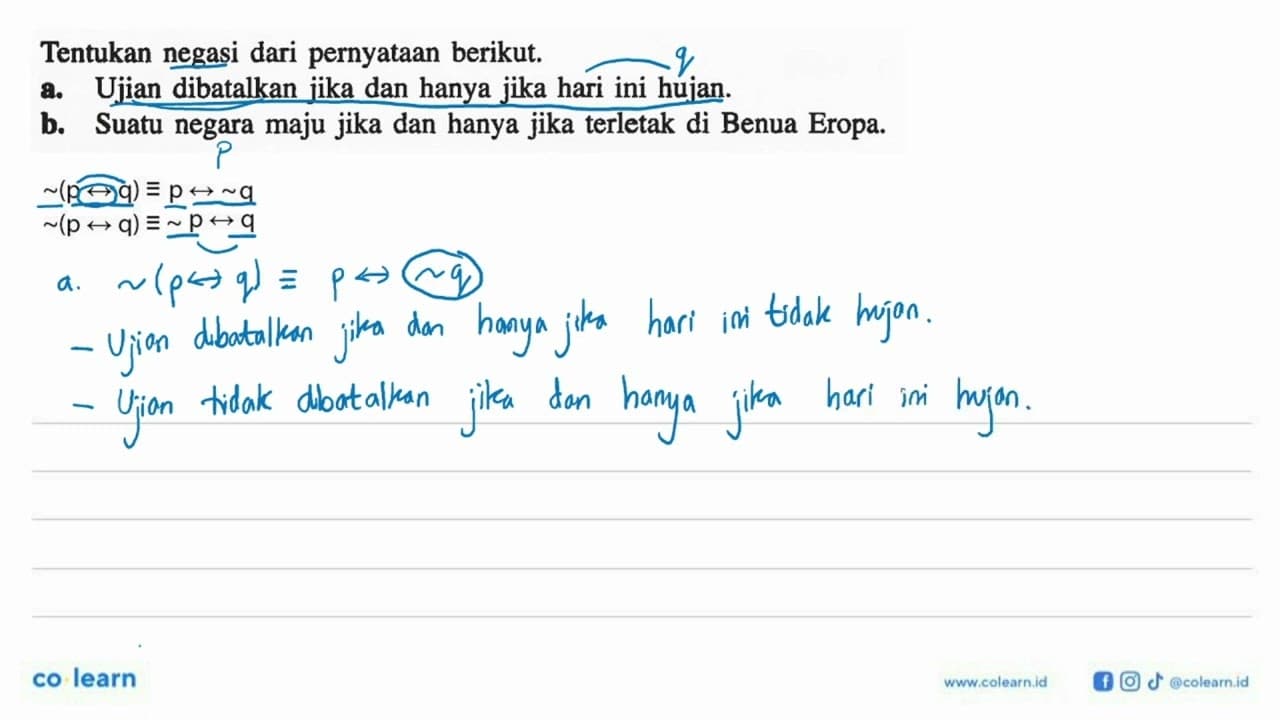 Tentukan negasi dari pernyataan berikut.
q
a. Ujian dibatalkan jika dan hanya jika hari ini hujan.
b. Suatu negara maju jika dan hanya jika terletak di Benua Eropa.
p
~(p ↔ q) ≡ p ↔ ~q
~(p ↔ q) ≡ ~ p ↔ q
a. ~(p ↔ q) ≡ p ↔ ~q
- Ujian dibatalkan jika dan hanya jika hari ini tidak hujan.
- Ujian tidak dibatalkan jika dan hanya jika hari ini hujan.
co learn
www.colearn.id @colearn.id